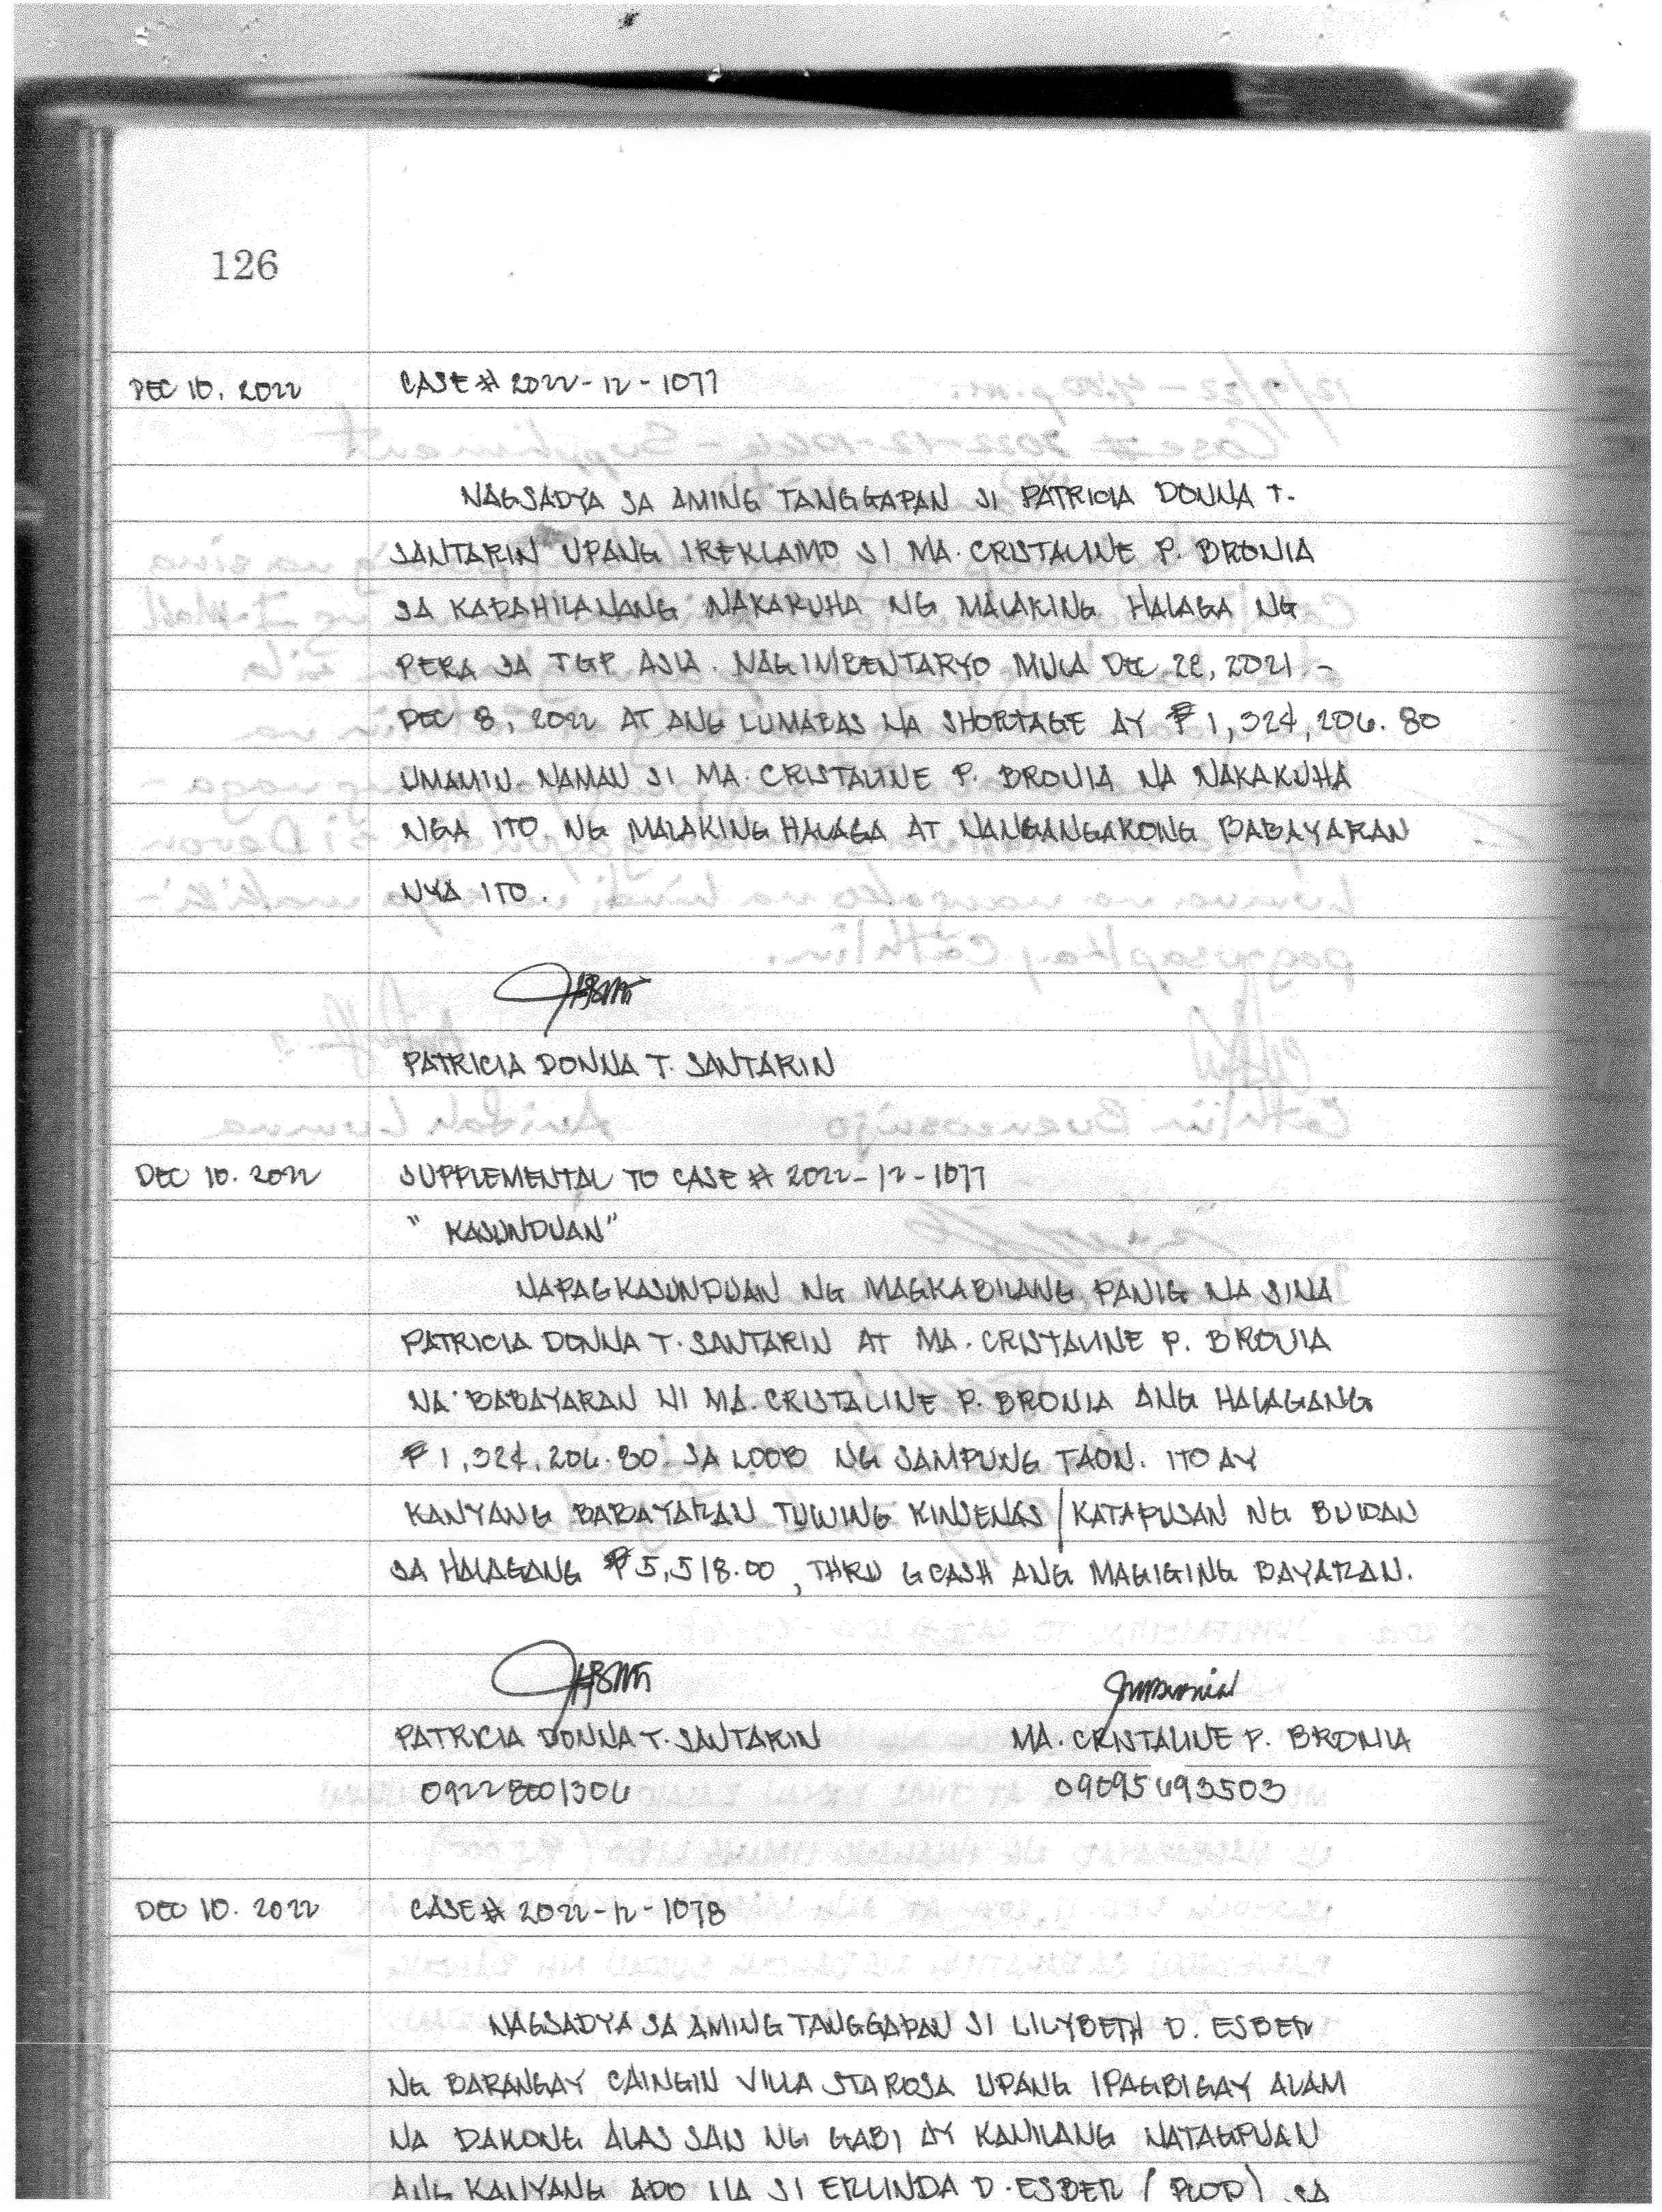 126
DEC 10, 2022 CASE # 2022-12-1077
NAGSADYA SA AMING TANGGAPAN SI PATRICIA DONNA T.
SANTARIN UPANG IREKLAMO SI MA. CRISTALINE P. BRONIA
SA KADAHILANANG NAKAKUHA NG MALAKING HALAGA NG
PERA SA TGP ASIA. NAGIMBENTARYO MULA DEC 22, 2021 -
DEC 8, 2022 AT ANG LUMABAS NA SHORTAGE AY ₱ 1,324,206.80
UMAMIN NAMAN SI MA. CRISTALINE P. BRONIA NA NAKAKUHA
NGA ITO NG MALAKING HALAGA AT NANGANGAKONG BABAYARAN
NYA ITO.
PATRICIA DONNA T. SANTARIN
DEC 10. 2022 SUPPLEMENTAL TO CASE # 2022-12-1077
" KASUNDUAN"
NAPAGKASUNDUAN NG MAGKABILANG PANIG NA SINA
PATRICIA DONNA T. SANTARIN AT MA. CRISTALINE P. BRONIA
NA BABAYARAN NI MA. CRISTALINE P. BRONIA ANG HALAGANG
₱ 1,324,206.80 SA LOOB NG SAMPUNG TAON. ITO AY
KANYANG BABAYARAN TUWING KINSENAS / KATAPUSAN NG BUWAN
SA HALAGANG ₱5,518.00, THRU GCASH ANG MAGIGING BAYARAN.
PATRICIA DONNA T. SANTARIN MA. CRISTALINE P. BRONIA
DEC 10. 2022 CASE # 2022-12-1078
NAGSADYA SA AMING TANGGAPAN SI LILYBETH D. ESBER
NG BARANGAY CAINGIN VILLA STA ROSA UPANG IPAGBIGAY ALAM
NA DAKONG ALAS SAIS NG GABI AY KANILANG NATAGPUAN
ANG KANYANG APO NA SI ERLINDA D. ESBER ( ) SA